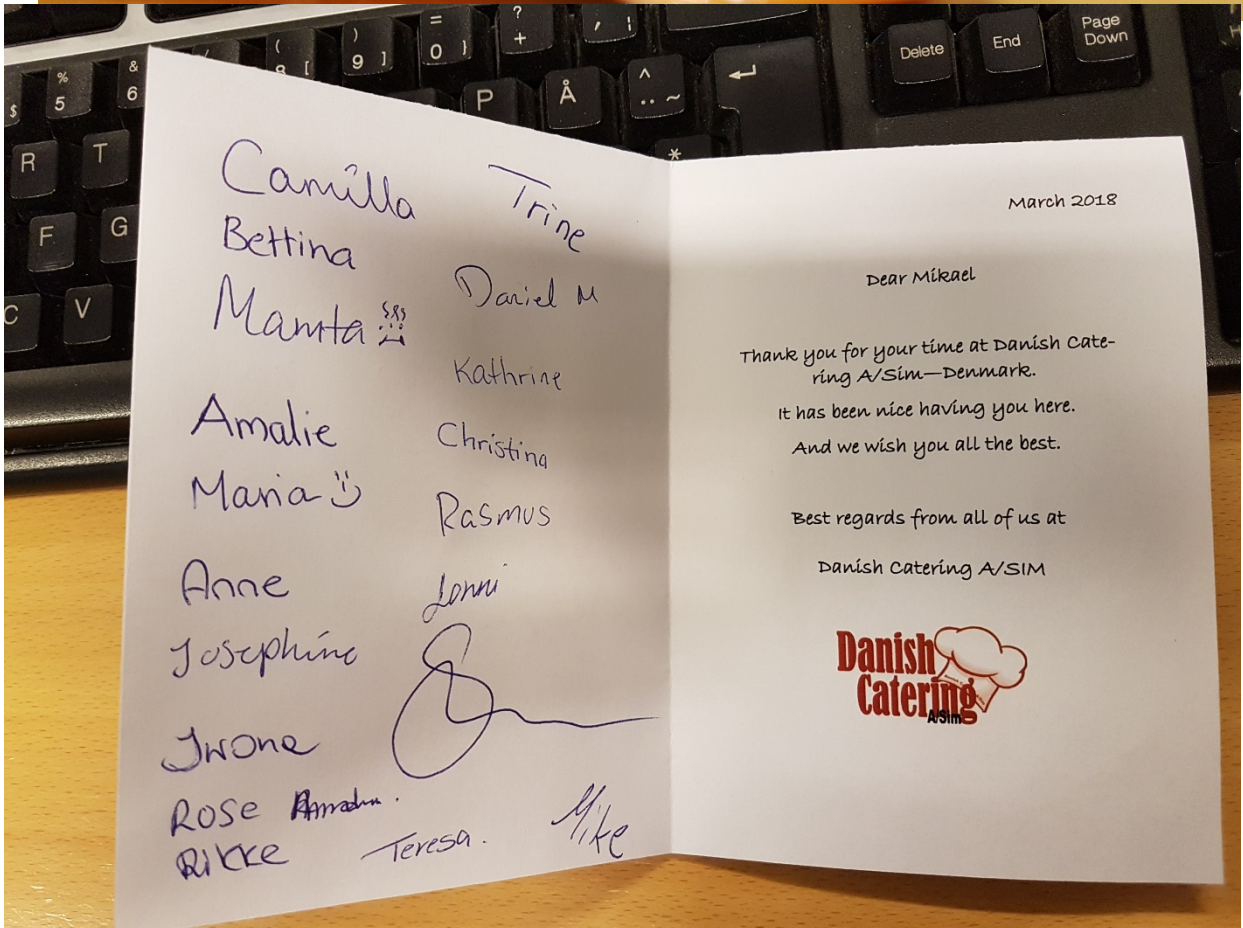 $
%
5
&
6
(
8 [
)
9 ]
=
0 }
?
+
Delete
End
Page
Down
R
T
P
Å
^
¨ ~
*
F
G
C
V
Camilla
Bettina
Mamta
Amalie
Maria
Anne
Josephine
Iwona
Rose
Rikke
Trine
Daniel M
Kathrine
Christina
Rasmus
Jonni
Teresa.
Mike
March 2018
Dear Mikael
Thank you for your time at Danish Cate-
ring A/Sim—Denmark.
It has been nice having you here.
And we wish you all the best.
Best regards from all of us at
Danish Catering A/SIM
Danish
Catering
A/Sim